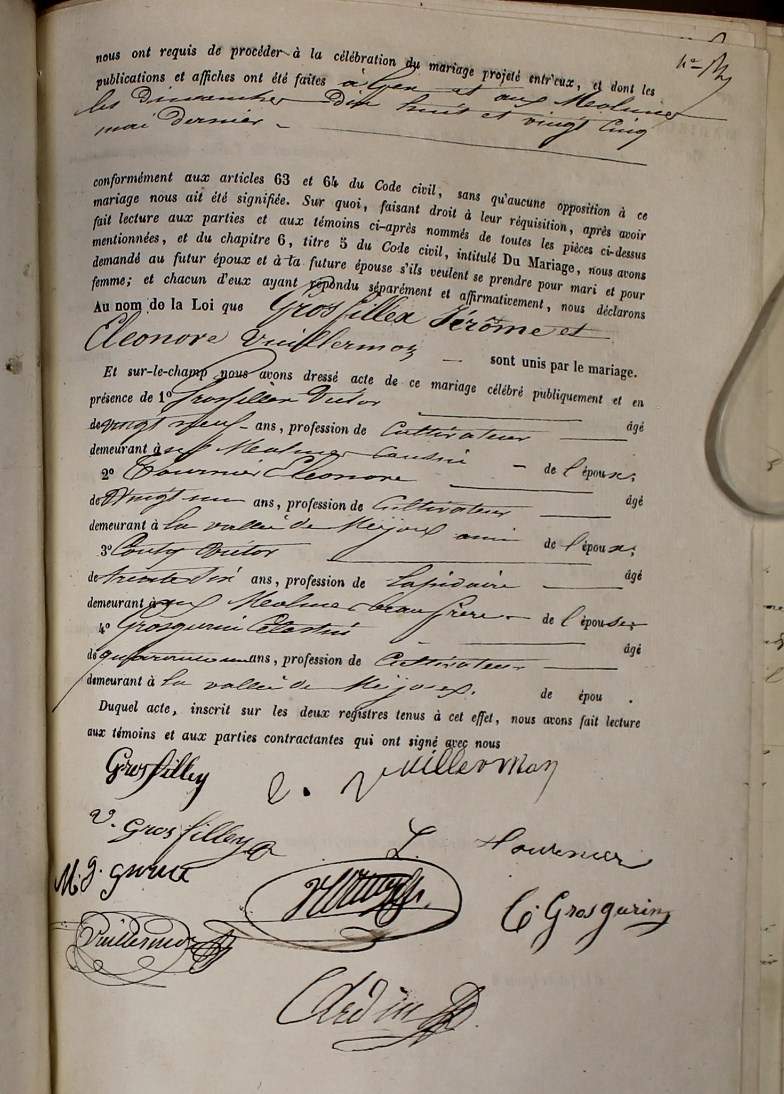 nous ont requis de procéder à la célébration du mariage projeté entr'eux, et dont les
publications et affiches ont été faites à Gex et aux Molunes
les Dimanches Dix huit et vingt Cinq
mai Dernier
conformément aux articles 63 et 64 du Code civil, sans qu'aucune opposition à ce
mariage nous ait été signifiée. Sur quoi, faisant droit à leur réquisition, après avoir
fait lecture aux parties et aux témoins ci-après nommés de toutes les pièces ci-dessus
mentionnées, et du chapitre 6, titre 5 du Code civil, intitulé Du Mariage, nous avons
demandé au futur époux et à la future épouse s'ils veulent se prendre pour mari et pour
femme; et chacun d'eux ayant répondu séparément et affirmativement, nous déclarons
Au nom de la Loi que Grosfillex Jérôme et
Eleonore Vuillermoz — sont unis par le mariage.
Et sur-le-champ nous avons dressé acte de ce mariage célébré publiquement et en
présence de 1º Grosfillex Victor
âgé
de vingt neuf ans, profession de Cultivateur
demeurant aux Molunes Cousin — de l'époux;
2º Tournier Eleonore
âgé
de Vingt un ans, profession de Cultivateur
demeurant à La vallée de Mijoux ami de l'époux;
3º Victor
âgé
de trente Six ans, profession de Lapidaire
demeurant aux Molunes beau frère de l'épouse;
4º Grosgurin Célestin
âgé
de quarante un ans, profession de Cultivateur
demeurant à La vallée de Mijoux. de épou .
Duquel acte, inscrit sur les deux registres tenus à cet effet, nous avons fait lecture
aux témoins et aux parties contractantes qui ont signé avec nous
Grosfilley
e. vuillermoz
v. Grosfilley
Tournier
C. Grosgurin
Vuillermoz